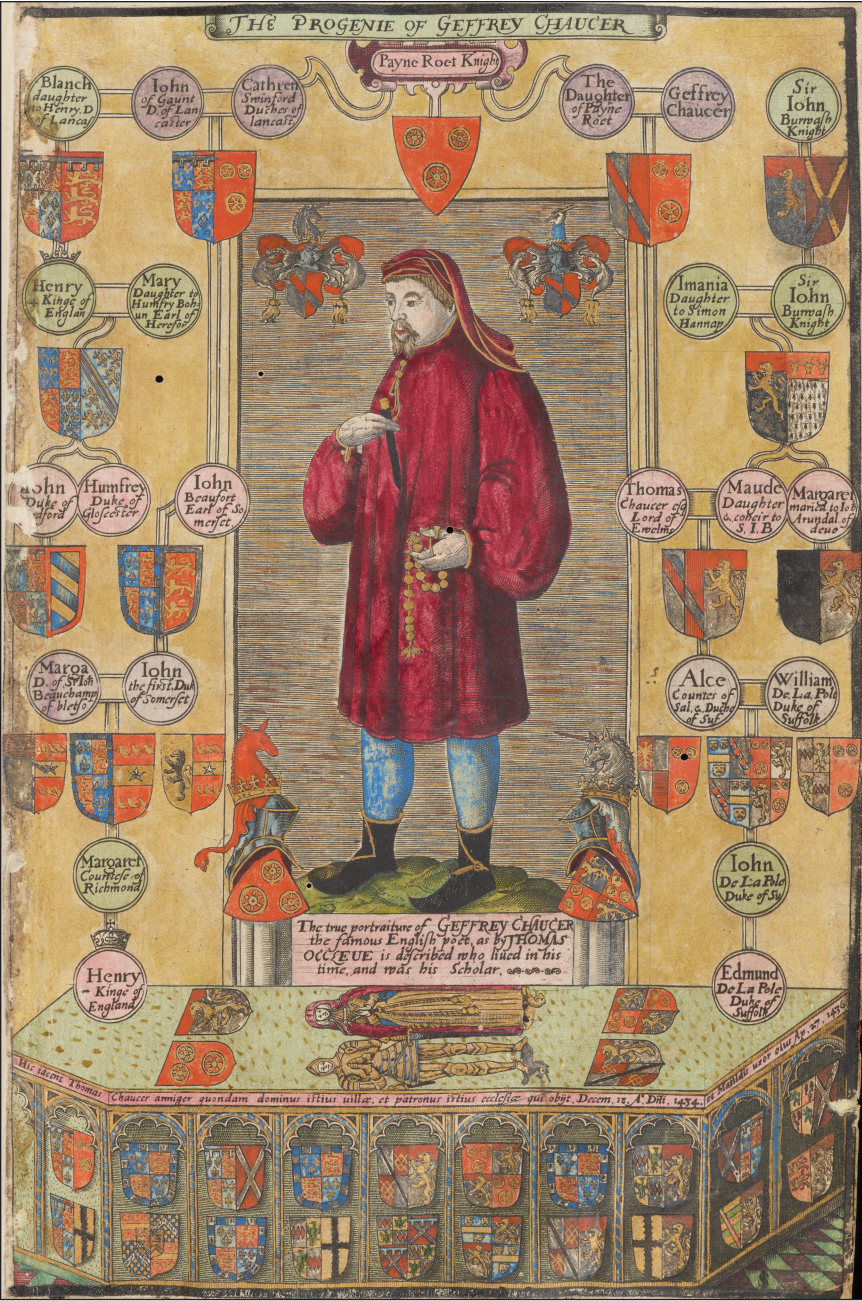 THE PROGENIE OF GEFFREY CHAUCER
Payne Roet Knight
Blanch
daughter
to Henry. D
of Lanca
Iohn
of Gaunt
D. of Lan
caster
Cathren
Swinford
Duches of
lancast.
The
Daughter
of Payne
Roet
Geffrey
Chaucer
Sir
Iohn
Burwash
Knight
Henry
4 Kinge of
Englan
Mary
Daughter to
Humfry Boh-
un Earl of
Herefor
Imania
Daughter
to Simon
Hannap
Sir
Iohn
Burwash
Knight
Iohn
Duke of
edford
Humfrey
Duke of
Glocester
Iohn
Beaufort
Earl of So
merset
Thomas
Chaucer esq
Lord of
Ewelme
Maude
Daughter
& coheir to
S. I. B
Margaret
maried to Ioh
Arundal of
devo
Marga
D. of Sr Ioh
Beauchamp
of bletso
Iohn
the first Duk
of Somerset
Alce
Countes of
Sal. & Duche
of Suf
William
De La Pole
Duke of
Suffolk
Margaret
Countese of
Richmond
Iohn
De La Pole
Duke of Su
Henry
Kinge of
England
Edmund
De La Pole
Duke of
Suffolk
The true portraiture of GEFFREY CHAUCER
the famous English poet, as by THOMAS
OCCLEUE is described who liued in his
time, and was his Scholar.
Hic iacent Thomas Chaucer armiger quondam dominus istius villæ, et patronus istius ecclesiæ qui obijt, Decem, 18, Ao. Dni, 1434, et Matildis uxor eius Ap. 27. 1436